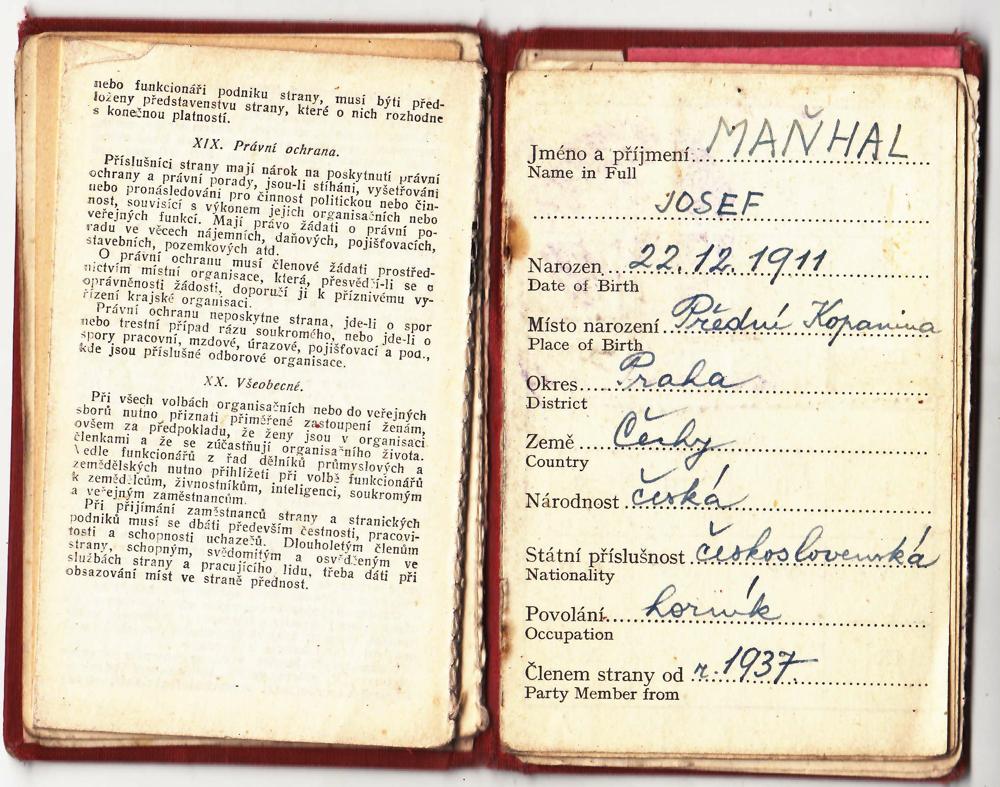 nebo funkcionáři podniku strany, musí býti před-
loženy představenstvu strany, které o nich rozhodne
s konečnou platností.
XIX. Právní ochrana.
Příslušníci strany mají nárok na poskytnutí právní
ochrany a právní porady, jsou-li stíháni, vyšetřováni
nebo pronásledováni pro činnost politickou nebo čin-
nost, souvisící s výkonem jejich organisačních nebo
veřejných funkcí. Mají právo žádati o právní po-
radu ve věcech nájemních, daňových, pojišťovacích,
stavebních, pozemkových atd.
O právní ochranu musí členové žádati prostřed-
nictvím místní organisace, která, přesvědčí-li se o
oprávněnosti žádosti, doporučí ji k příznivému vy-
řízení krajské organisaci.
Právní ochranu neposkytne strana, jde-li o spor
nebo trestní případ rázu soukromého, nebo jde-li o
spory pracovní, mzdové, úrazové, pojišťovací a pod.,
kde jsou příslušné odborové organisace.
XX. Všeobecné.
Při všech volbách organisačních nebo do veřejných
sborů nutno přiznati přiměřené zastoupení ženám,
ovšem za předpokladu, že ženy jsou v organisaci
členkami a že se zúčastňují organisačního života.
Vedle funkcionářů z řad dělníků průmyslových a
zemědělských nutno přihlížeti při volbě funkcionářů
k zemědělcům, živnostníkům, inteligenci, soukromým
a veřejným zaměstnancům.
Při přijímání zaměstnanců strany a stranických
podniků musí se dbáti především čestnosti, pracovi-
tosti a schopnosti uchazečů. Dlouholetým členům
strany, schopným, svědomitým a osvědčeným ve
službách strany a pracujícího lidu, třeba dáti při
obsazování míst ve straně přednost.
Jméno a příjmení MAŇHAL
Name in Full
JOSEF
Narozen 22.12.1911
Date of Birth
Místo narození Přední Kopanina
Place of Birth
Okres Praha
District
Země Čechy
Country
Národnost česká
Státní příslušnost československá
Nationality
Povolání horník
Occupation
Členem strany od r. 1937
Party Member from